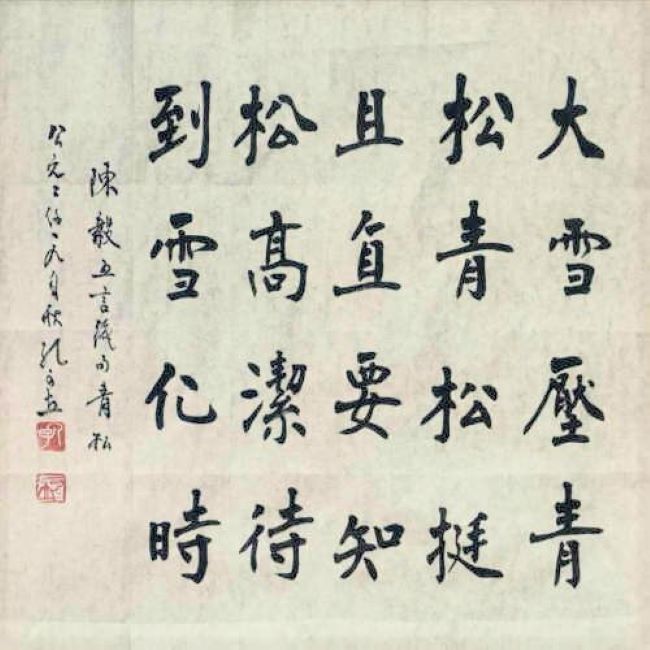 大雪壓青
松青松挺
且直要知
松高潔待
到雪化時
陳毅五言絕句青松
公元二〇一九月秋